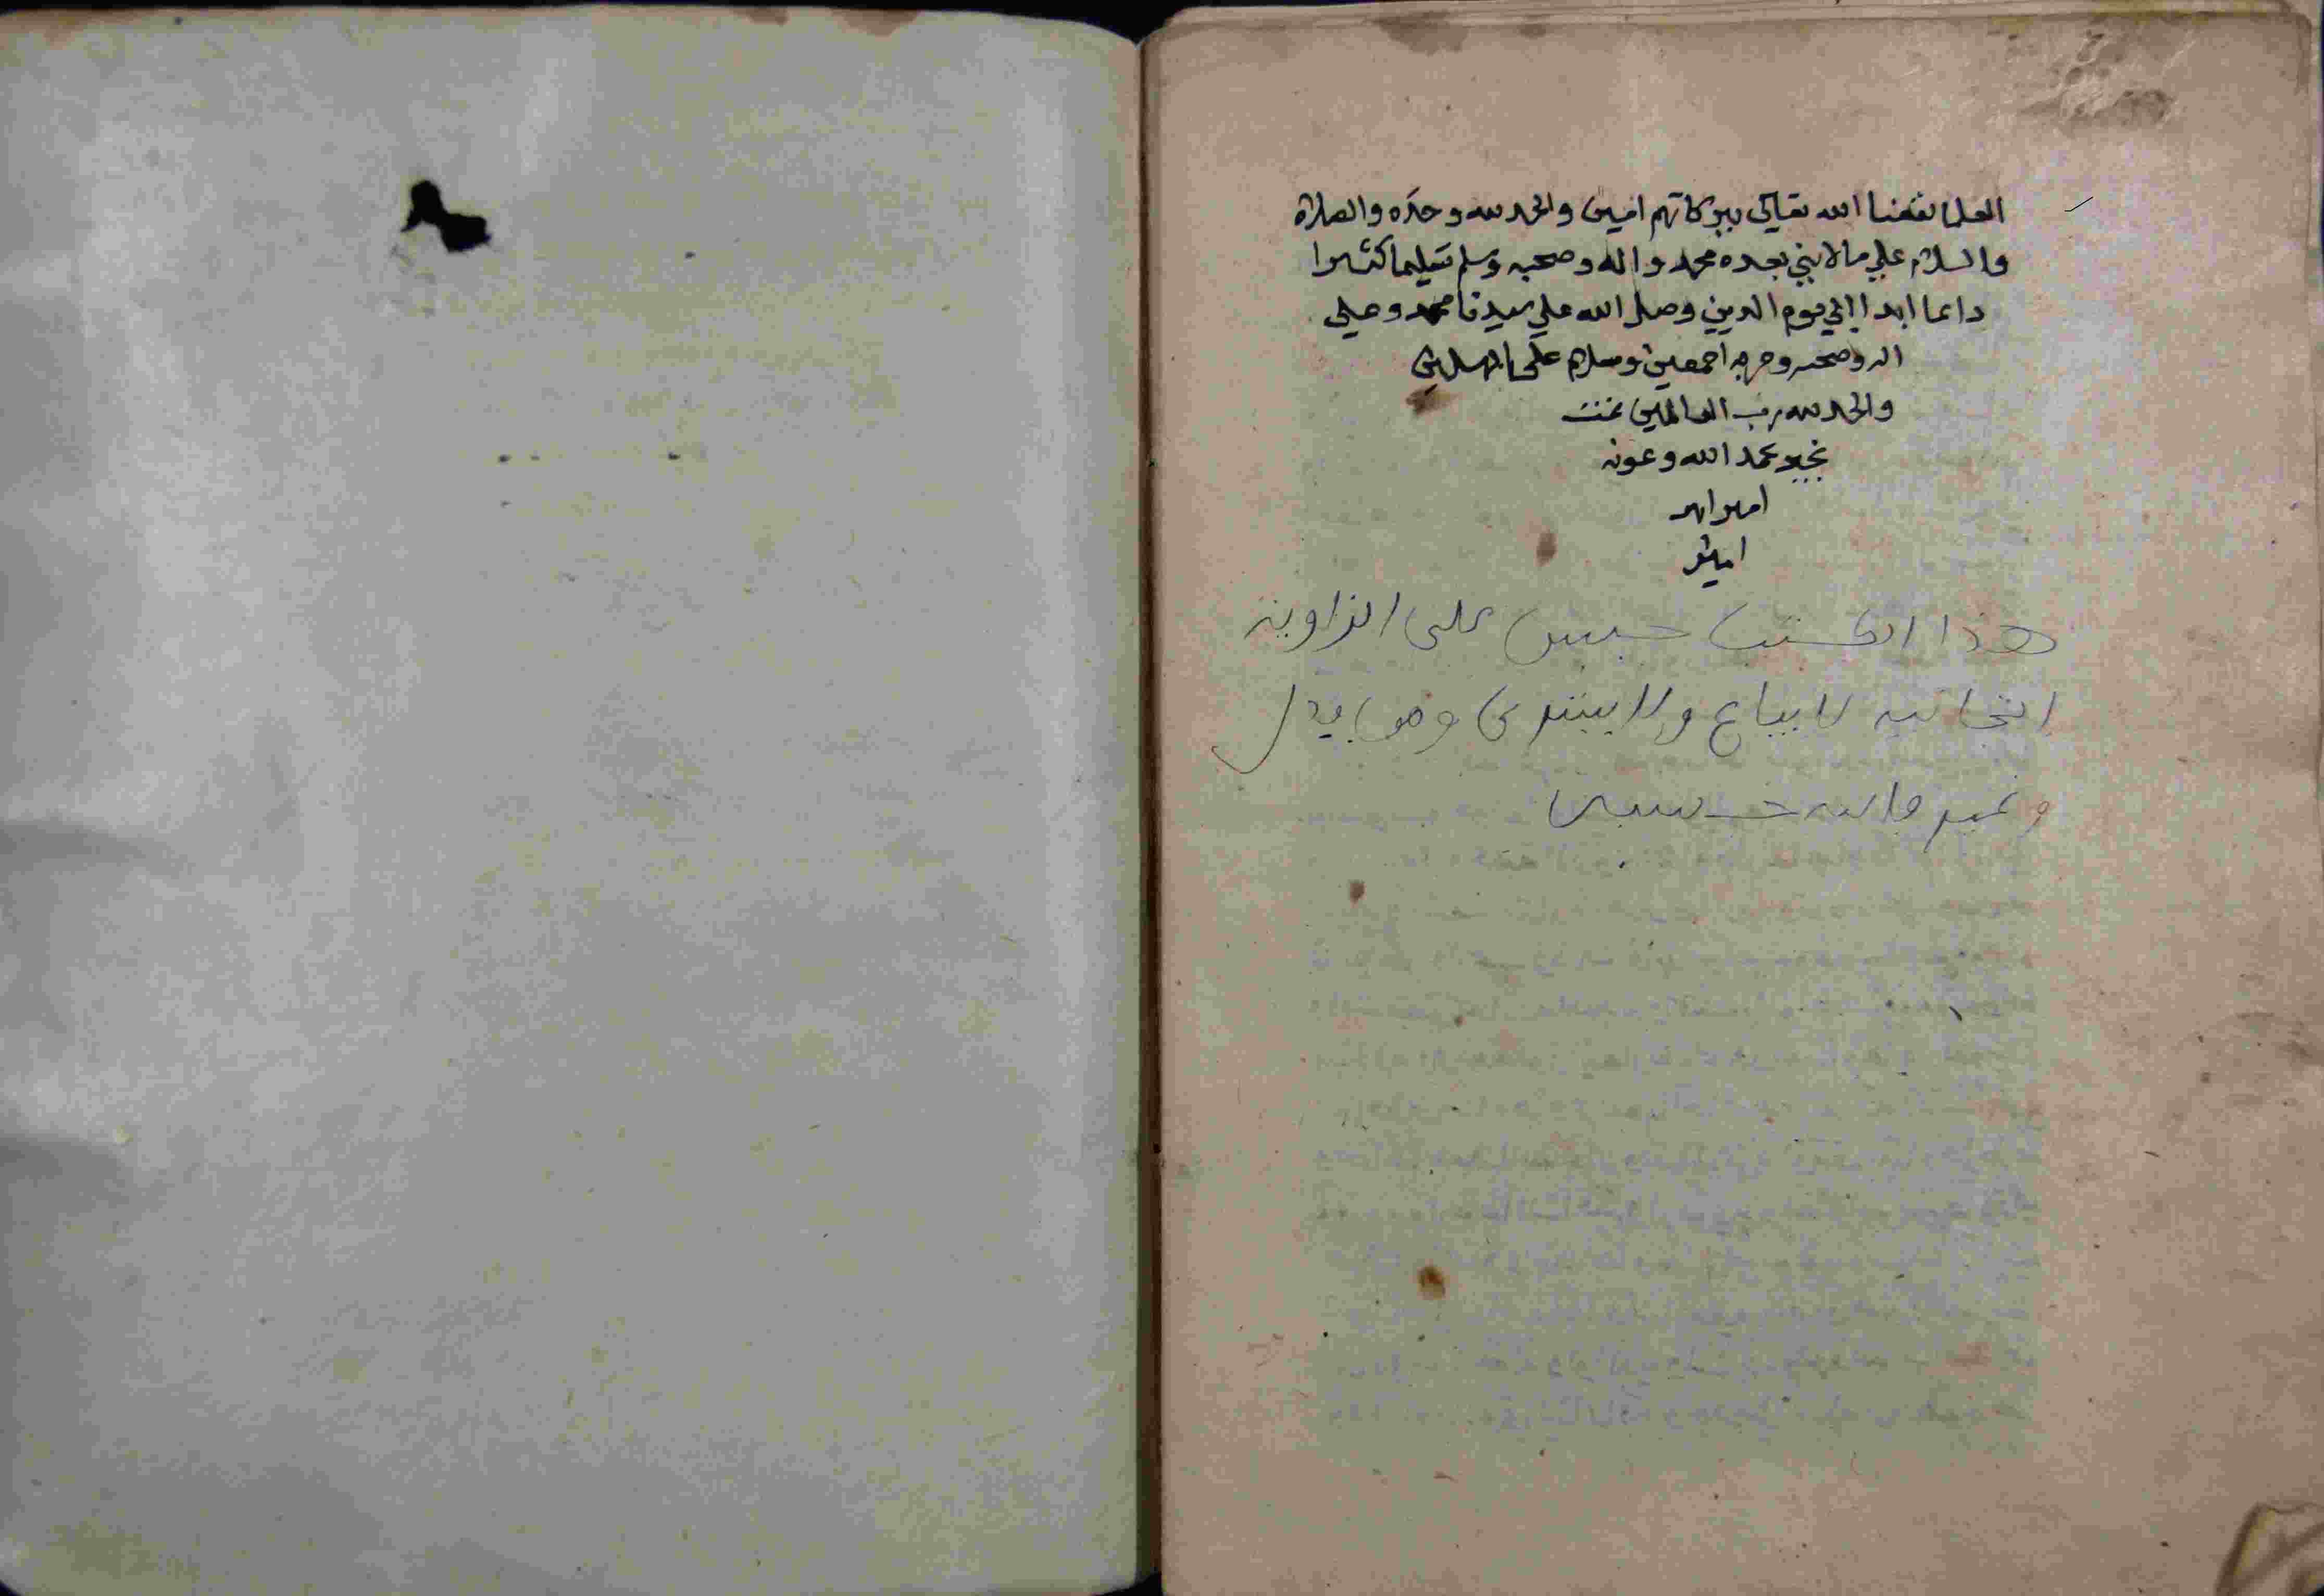 العلما نفعنا الله تعالي ببركاتهم امين والحمد لله وحده والصلاة
والسلام علي مالا نبي بعده محمد واله وصحبه وسلم تسليما كثيرا
دايما ابدا الي يوم الدين وصلى الله علي سيدنا محمد وعلى
اله وصحبه وحزبه اجمعين وسلام على المرسلين
والحمد لله رب العالمين تمت
بخير بحمد الله وعونه
امين
امين
هذا الكتب حبس على الزاوية
التجانيه لا يباع ولا يشترى ومن بدل
وغير فالله حسيبه